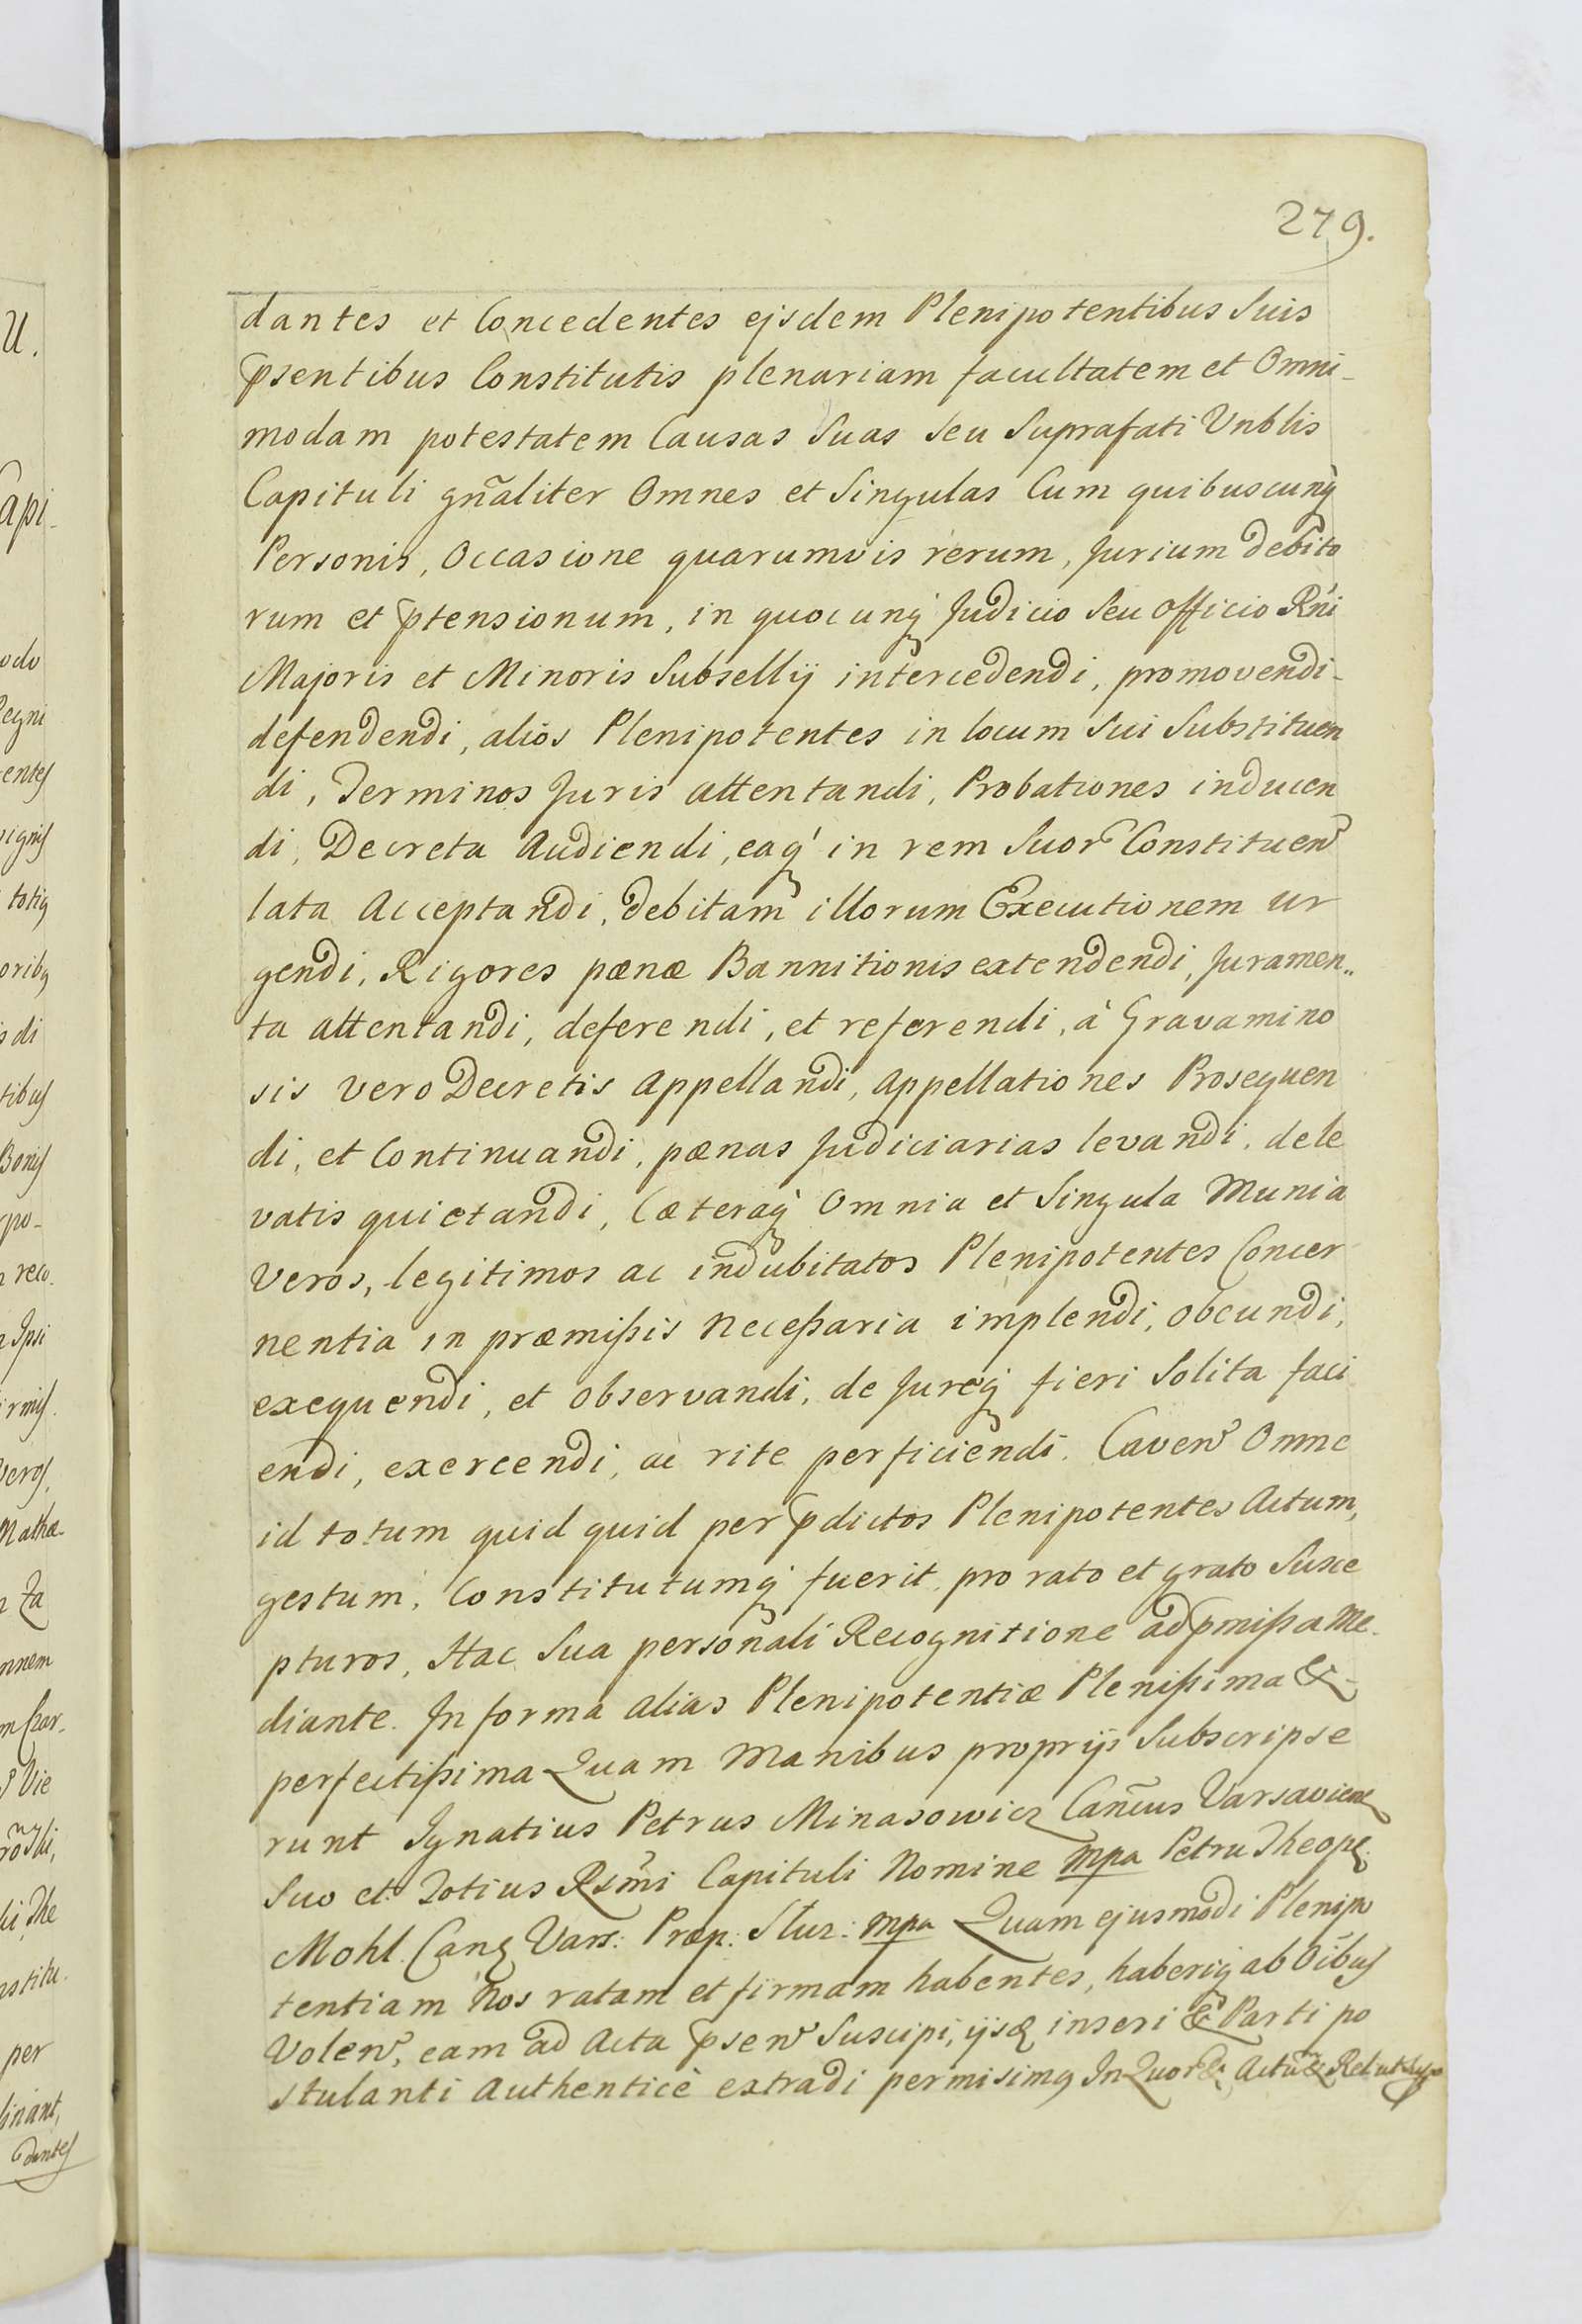 279.
dantes et Concedentes ejsdem Plenipotentibus Suis
psentibus Constitutis plenariam facultatem et Omni-
modam potestatem Causas Suas seu Suprafati Vnblis
Capituli gñaliter Omnes et Singulas Cum quibuscunq
Personis, Occasione quarumvis rerum, Jurium debito
rum et ptensionum, in quocunq Judicio Seu Officio Rñi
Majoris et Minoris Subsellij intercedendi, promovendi-
defendendi, alios Plenipotentes in locum Sui Substituen
di, Terminos Juris attentandi, Probationes inducen
di, Decreta Audiendi, eaq in rem Suor Constituen
lata Acceptandi, debitam illorum Executionem ur
gendi, Rigores pænæ Bannitionis extendendi, Juramen„
ta attentandi, deferendi, et referendi, à Gravamino
sis vero Decretis Appellandi, Appellationes Prosequen
di, et Continuandi, pænas Judiciarias levandi, de le
vatis quietandi, Cæteraq Omnia et Singula Munia
Veros, legitimos ac indubitatos Plenipotentes Concer
nentia in præmißis Neceßaria implendi, obeundi,
exequendi, et observandi, de Jureq fieri Solita faci
endi, exercendi, ac rite perficiendi. Caven Omne
id totum quid quid per pdictos Plenipotentes Actum,
gestum, Constitutumq fuerit, pro rato et grato Susce
pturos, Hac Sua personali Recognitione ad pmißa Me-
diante. In forma alias Plenipotentiæ Plenißima &
perfectißima Quam Manibus proprijs Subscripse
runt Ignatius Petrus Minasowicz Cañcus Varsavien
Suo et Totius Rsmi Capituli Nomine mpa Petru Theop
Mohl. Can Vars: Præp: Stuz: mpa Quam ejusmodi Plenipo
tentiam Nos ratam et firmam habentes, haberiq ab Oibus
Volen, eam ad Acta psen Suscipi, ijsq inseri & Parti po
stulanti Authenticè extradi permisimq In Quor Actu & Rel ut Supr